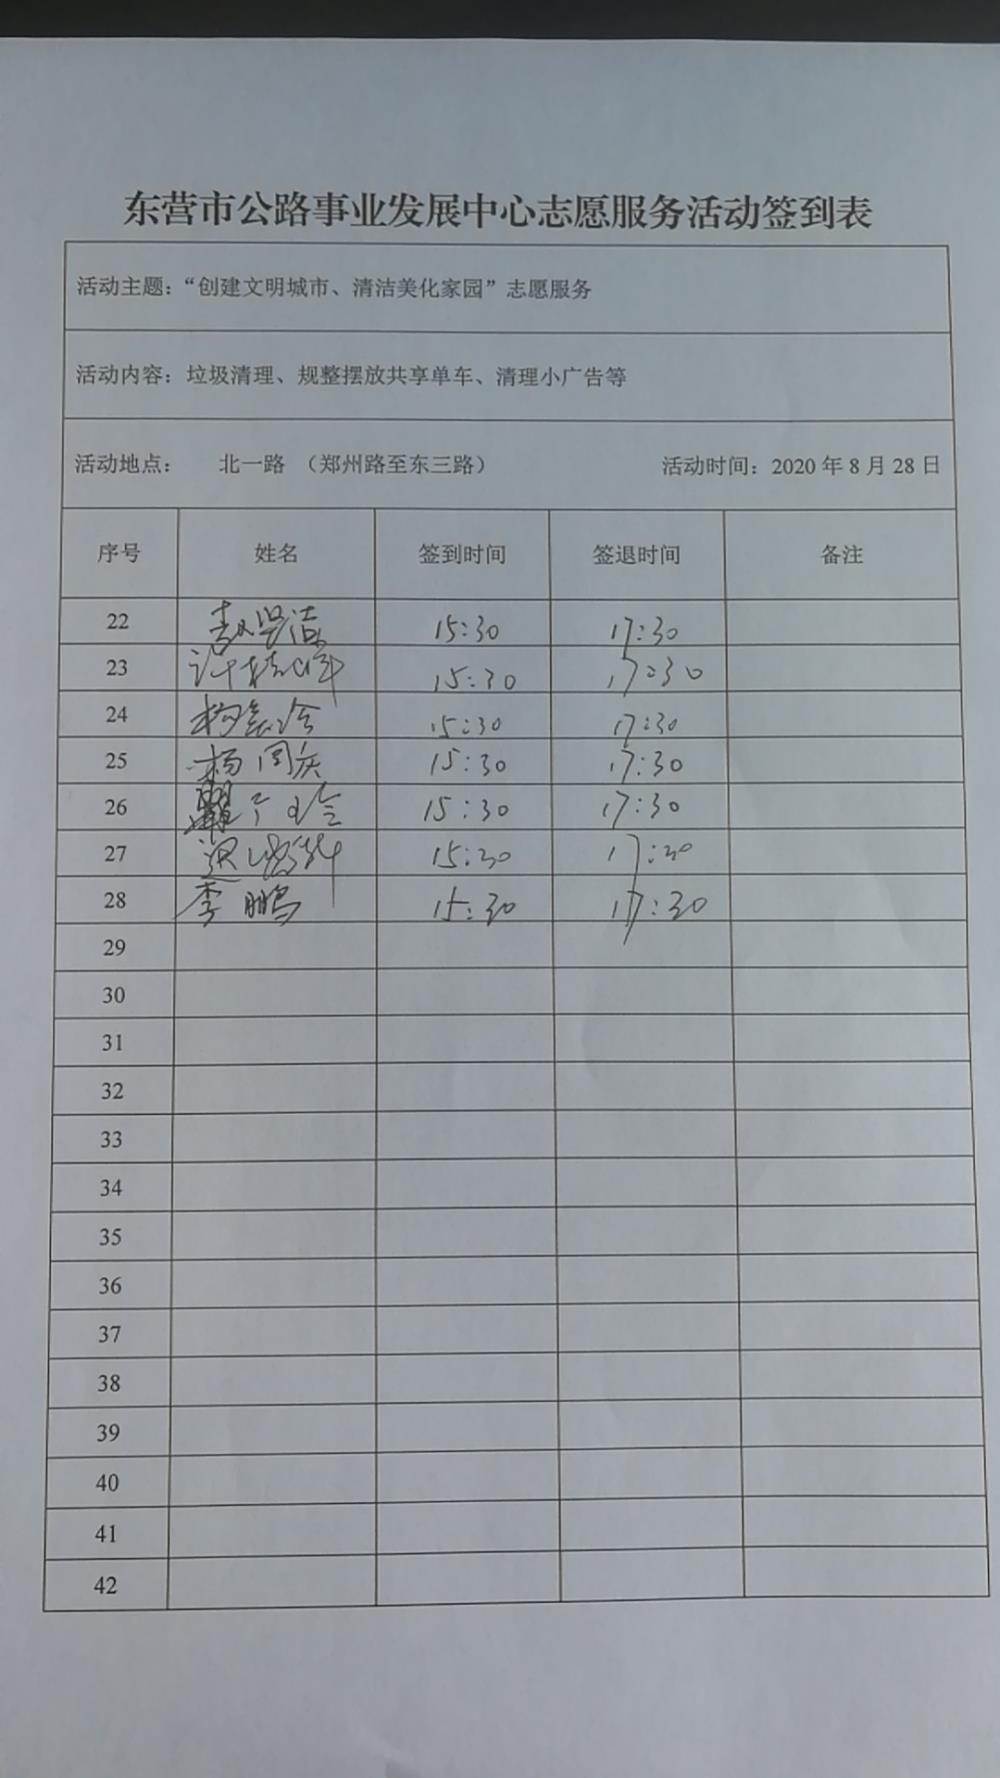 东营市公路事业发展中心志愿服务活动签到表
活动主题：“创建文明城市、清洁美化家园”志愿服务
活动内容：垃圾清理、规整摆放共享单车、清理小广告等
活动地点： 北一路 （郑州路至东三路） 活动时间：2020 年 8 月 28 日
序号 姓名 签到时间 签退时间 备注
22 15:30 17:30
23 15:30 17:30
24 15:30 17:30
25 杨国庆 15:30 17:30
26 15:30 17:30
27 15:30 17:30
28 李鹏 15:30 17:30
29
30
31
32
33
34
35
36
37
38
39
40
41
42